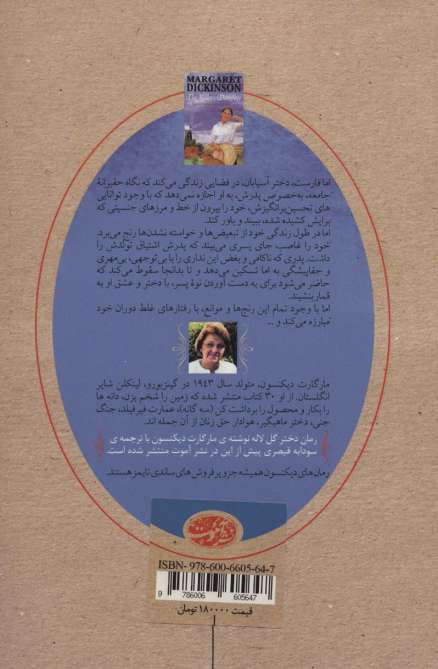 MARGARET
DICKINSON
اما فارست، دختر آسیابان، در فضایی زندگی می‌کند که نگاه حقیرانهٔ
جامعه، به‌خصوص پدرش، به او اجازه نمی‌دهد که با وجود توانایی
های تحسین‌برانگیزش، خود را بیرون از خط و مرزهای جنسیتی که
برایش کشیده شده، ببیند و باور کند.
اما در طول زندگی خود از تبعیض‌ها و خواسته نشدن‌ها رنج می‌برد.
خود را غاصب جای پسری می‌بیند که پدرش اشتیاق تولدش را
داشت. پدری که ناکامی و بغض این نداری را با بی‌توجهی، بی‌مهری
و جفاپیشگی به اما تسکین می‌دهد و تا بدانجا سقوط می‌کند که
حاضر می‌شود برای به دست آوردن نوهٔ پسر، با دختر و عشق او به
قمار بنشیند.
اما با وجود تمام این رنج‌ها و موانع، با رفتارهای غلط دوران خود
مبارزه می‌کند و ...
مارگارت دیکنسون، متولد سال ۱۹۴۳ در گینزبورو، لینکلن شایر
انگلستان. از او ۳۰ کتاب منتشر شده که زمین را شخم بزن، دانه ها
را بکار و محصول را برداشت کن (سه گانه)، عمارت فیرفیلد، جنگ
جنی، دختر ماهیگیر، هوادار حق زنان از آن جمله اند.
رمان دختر گل لاله نوشته ی مارگارت دیکنسون با ترجمه ی
سودابه قیصری پیش از این در نشر آموت منتشر شده است
رمان‌های دیکنسون همیشه جزو پرفروش‌های ساندی تایمز هستند.
نشر آموت
ISBN- 978-600-6605-64-7
9 786006 605647
قیمت ۱۸۰۰۰۰ تومان